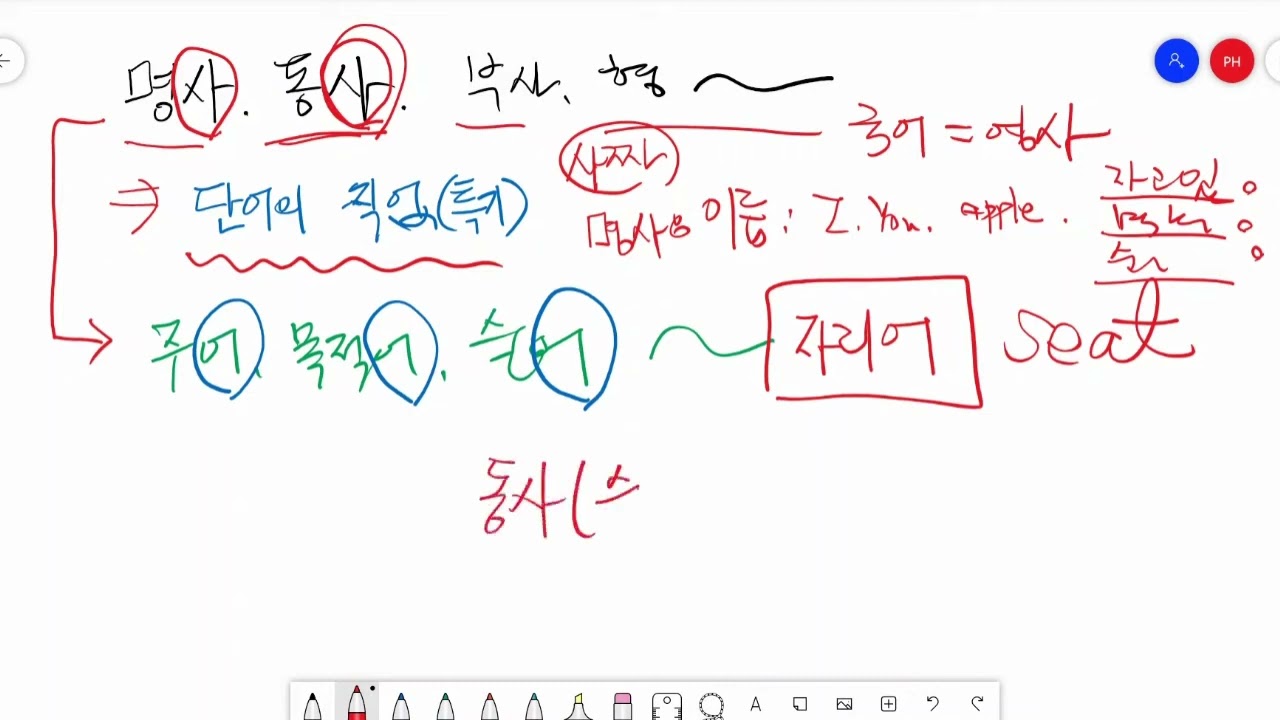 명사. 동사. 부사. 형
PH
국어 = 영사
사짜
⇒ 단어의 직업(특기)
명사용 이름 : I. You. apple.
자리일
주어. 목적어. 술어 자리어 seat
동사(스